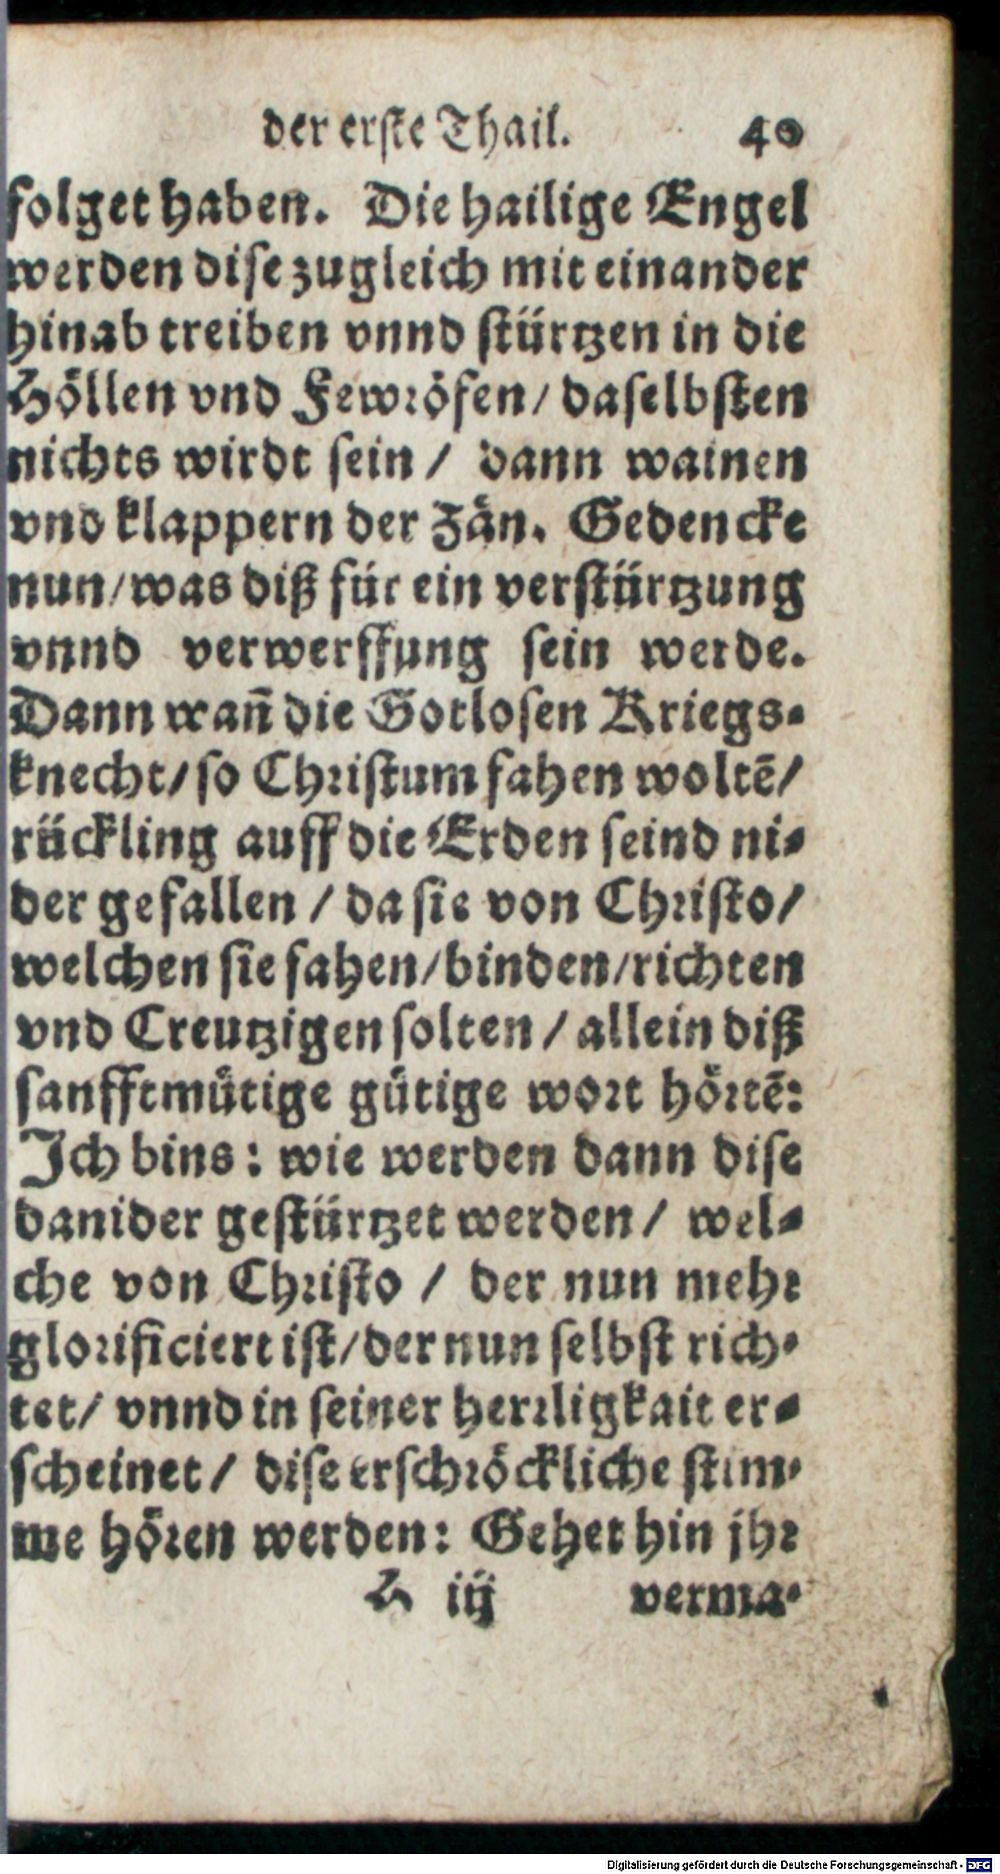 der erste Thail. 40
folget haben. Die hailige Engel
werden dise zugleich mit einander
hinab treiben vnnd stürtzen in die
Höllen vnd Fewröfen/ daselbsten
nichts wirdt sein / dann wainen
vnd klappern der Zän. Gedencke
nun/was diß für ein verstürtzung
vnnd verwerffung sein werde.
Dann wañ die Gotlosen Kriegs-
knecht/so Christum fahen woltē/
rückling auff die Erden seind ni-
der gefallen / da sie von Christo/
welchen sie fahen/binden/richten
vnd Creutzigen solten / allein diß
sanfftmütige gütige wort hörtē:
Ich bins: wie werden dann dise
danider gestürtzet werden / wel-
che von Christo / der nun mehr
glorificiert ist/der nun selbst rich-
tet/ vnnd in seiner herrligkait er-
scheinet / dise erschröckliche stim-
me hören werden: Gehet hin jhr
H iij verma-
Digitalisierung gefördert durch die Deutsche Forschungsgemeinschaft - DFG